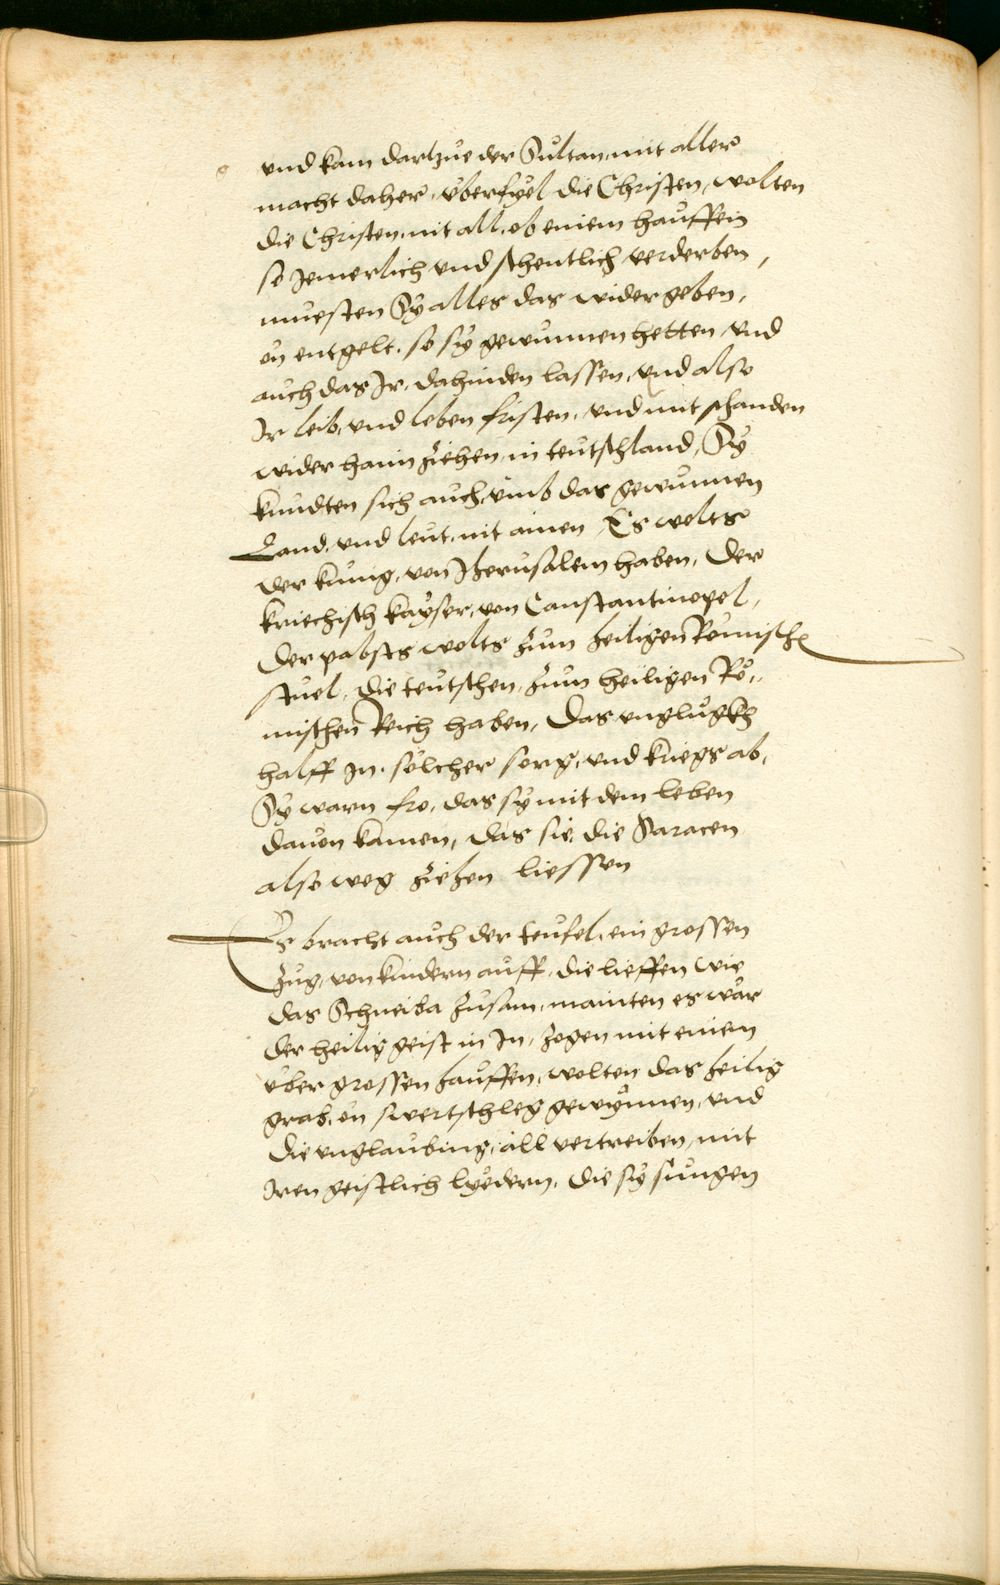 vnd kam dartzue der Sultan, mit aller
macht daher, vberfyel die Christen, wolten
die Christen, nit all, ob einem hauffen
so Jemerlich vnd schentlich verderben,
muesten Sy alles das wider geben,
on entgelt, so sy gewunnen hetten, vnd
auch das Jr, dahinden lassen, vnd also
Jr leib, vnd leben fristen, vnd mit schanden
wider haim ziehen, in teutschland, Sy
kundten sich auch, vmb das gewunnen
Land, vnd leut, nit ainen, Es wolts
der kunig, von Jherusalem haben, Der
kriechisch kayser, von Constantinopel,
Der pabsts wolts zum heiligen Römisch
stuel, die teutschen, zum heiligen Rö,,
mischen Reich haben, Das vnglugkh
halff Jn, solcher sorg, vnd kriegs ab,
Sy warn fro, das sy mit dem leben
dauon kamen, das sie, die Saracen
also weg ziehen liessen
Es bracht auch der teufel, ein grossen
Zug, von kindern auff, die lieffen wie
das Schneiba zusam, mainten es wär
der heilig geist in Jn, zogen mit einem
vber grossen hauffen, wolten das heilig
grab, on swertschleg gewynnen, vnd
die vnglaubing, all vertreiben, mit
Jren geistlich lyedern, die sy sungen